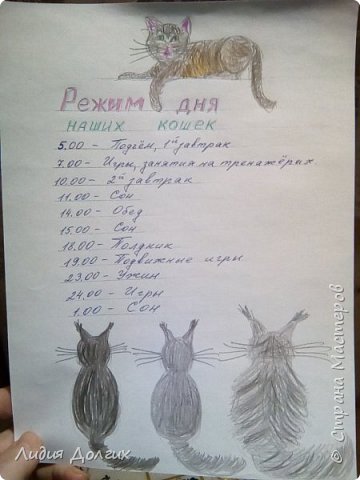 Режим дня
наших кошек
5.00 - Подъём, 1й завтрак
7.00 - Игры, занятия на тренажёрах
10.00 - 2й завтрак
11.00 - Сон
14.00 - Обед
15.00 - Сон
18.00 - Полдник
19.00 - Подвижные игры
23.00 - Ужин
24.00 - Игры
1.00 - Сон
© Страна Мастеров
Лидия Долгих